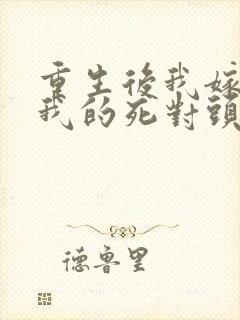 重生後我嫁
我的死對頭
德魯里